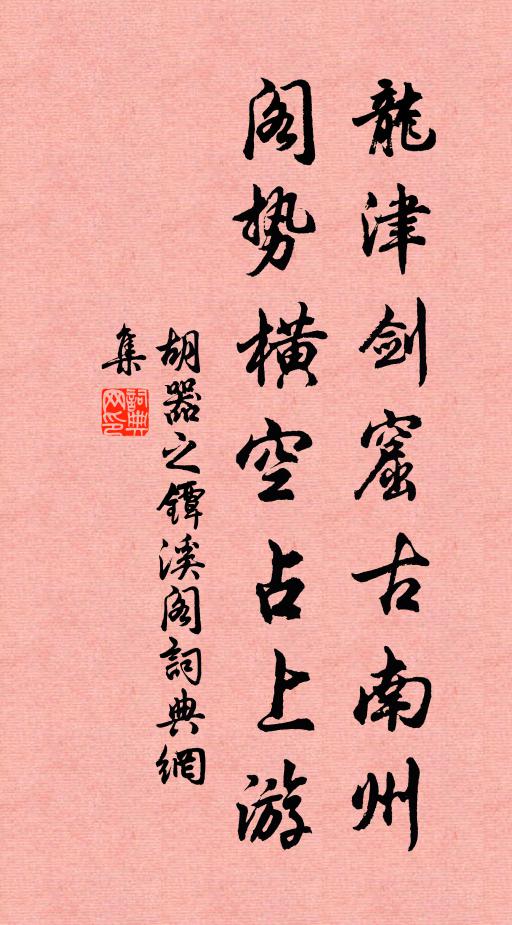 龍津劍窟古南州
阁势橫空占上游
胡器之鐔溪阁詞典網
集
詞典
网印